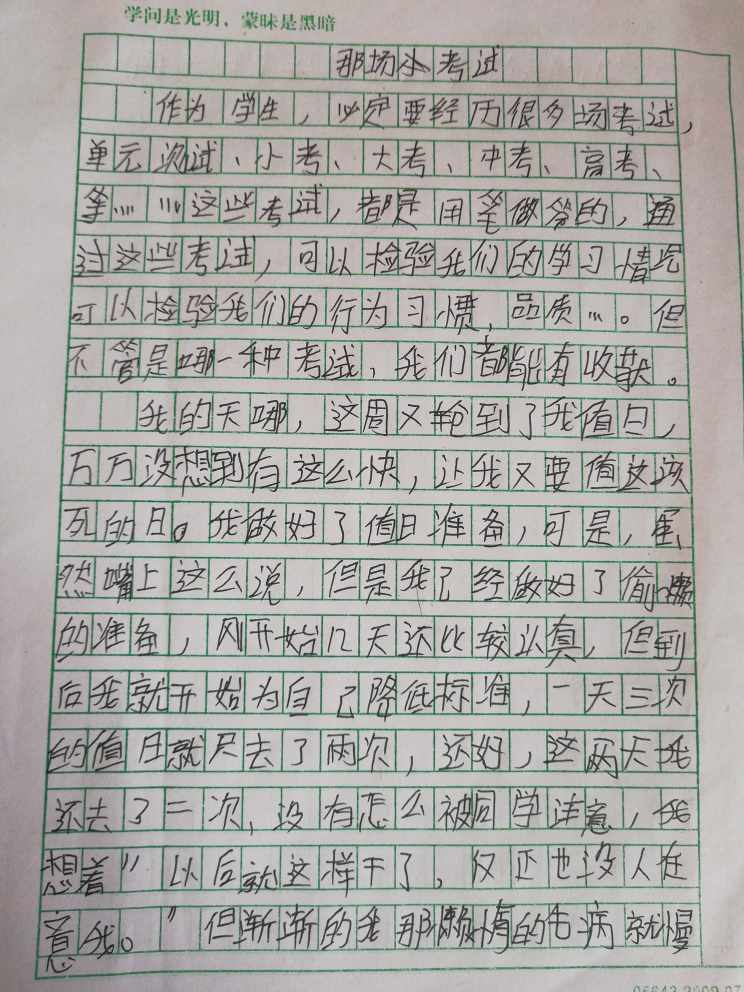 学问是光明，蒙昧是黑暗
那场小考试
作为学生，必定要经历很多场考试，
单元测试、小考、大考、中考、高考、
等……这些考试，都是用笔做答的，通
过这些考试，可以检验我们的学习情况
可以检验我们的行为习惯，品质…。但
不管是哪一种考试，我们都能有收获。
我的天哪，这周又轮到了我值日，
万万没想到有这么快，让我又要值这该
死的日。我做好了值日准备，可是，虽
然嘴上这么说，但是我已经做好了偷懒
的准备，刚开始几天还比较认真，但到
后我就开始为自己降低标准，一天三次
的值日就只去了两次，还好，这两天我
还去了二次，没有怎么被同学注意，我
想着"以后就这样干了，反正也没人在
意我。"但渐渐的我那懒惰的毛病就慢